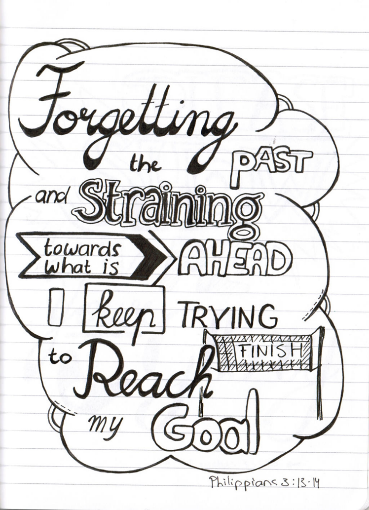 Forgetting
the PAST
and Straining
towards what is AHEAD
I keep TRYING
FINISH
to Reach
my Goal
Philippians 3:13-14